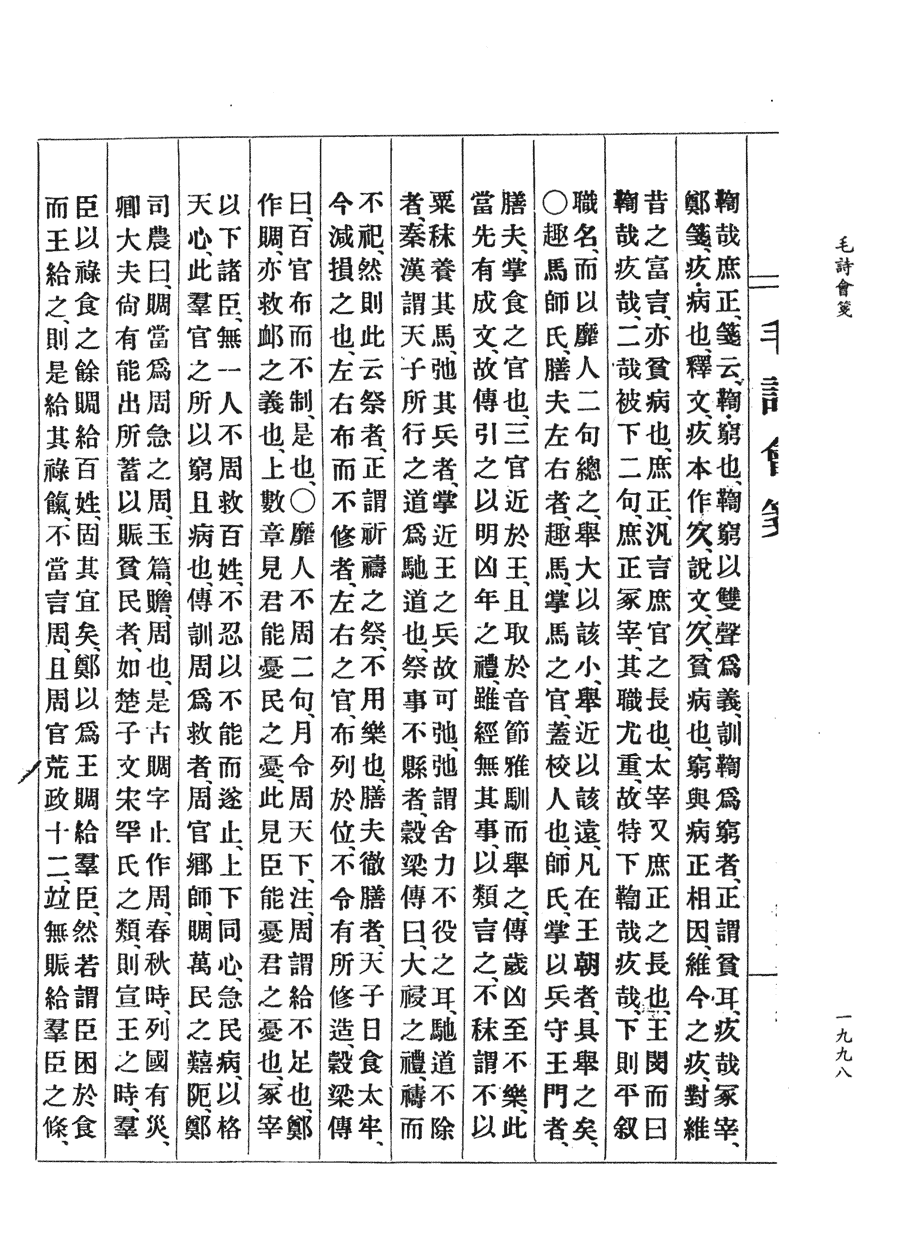 毛詩會箋
一九九八
毛詩會箋
鞫哉庶正、箋云、鞫、窮也、鞫窮以雙聲爲義、訓鞫爲窮者、正謂貧耳、疚哉冢宰、
鄭箋、疚、病也、釋文、疚本作㝌、說文、㝌、貧病也、窮與病正相因、維今之疚、對維
昔之富言、亦貧病也、庶正、汎言庶官之長也、太宰又庶正之長也、王閔而曰
鞫哉疚哉、二哉被下二句、庶正冢宰、其職尤重、故特下鞫哉疚哉、下則平叙
職名、而以靡人二句總之、舉大以該小、舉近以該遠、凡在王朝者、具舉之矣、
〇趣馬師氏、膳夫左右者、趣馬、掌馬之官、蓋校人也、師氏、掌以兵守王門者、
膳夫、掌食之官也、三官近於王、且取於音節雅馴而舉之、傳歲凶至不樂、此
當先有成文、故傳引之以明凶年之禮、雖經無其事、以類言之、不秣謂不以
粟秣養其馬、弛其兵者、掌近王之兵故可弛、弛謂舍力不役之耳、馳道不除
者、秦漢謂天子所行之道爲馳道也、祭事不縣者、穀梁傳曰、大祲之禮、禱而
不祀、然則此云祭者、正謂祈禱之祭、不用樂也、膳夫徹膳者、天子日食太牢、
今減損之也、左右布而不修者、左右之官、布列於位、不令有所修造、穀梁傳
曰、百官布而不制、是也、〇靡人不周二句、月令周天下、注、周謂給不足也、鄭
作賙、亦救䘏之義也、上數章見君能憂民之憂、此見臣能憂君之憂也、冢宰
以下諸臣、無一人不周救百姓、不忍以不能而遂止、上下同心、急民病、以格
天心、此羣官之所以窮且病也、傳訓周爲救者、周官鄉師、賙萬民之囏阨、鄭
司農曰、賙當爲周急之周、玉篇、贍、周也、是古賙字止作周、春秋時、列國有災、
卿大夫尙有能出所蓄以賑貧民者、如楚子文宋罕氏之類、則宣王之時、羣
臣以祿食之餘賙給百姓、固其宜矣、鄭以爲王賙給羣臣、然若謂臣困於食
而王給之、則是給其祿餼、不當言周、且周官荒政十二、竝無賑給羣臣之條、